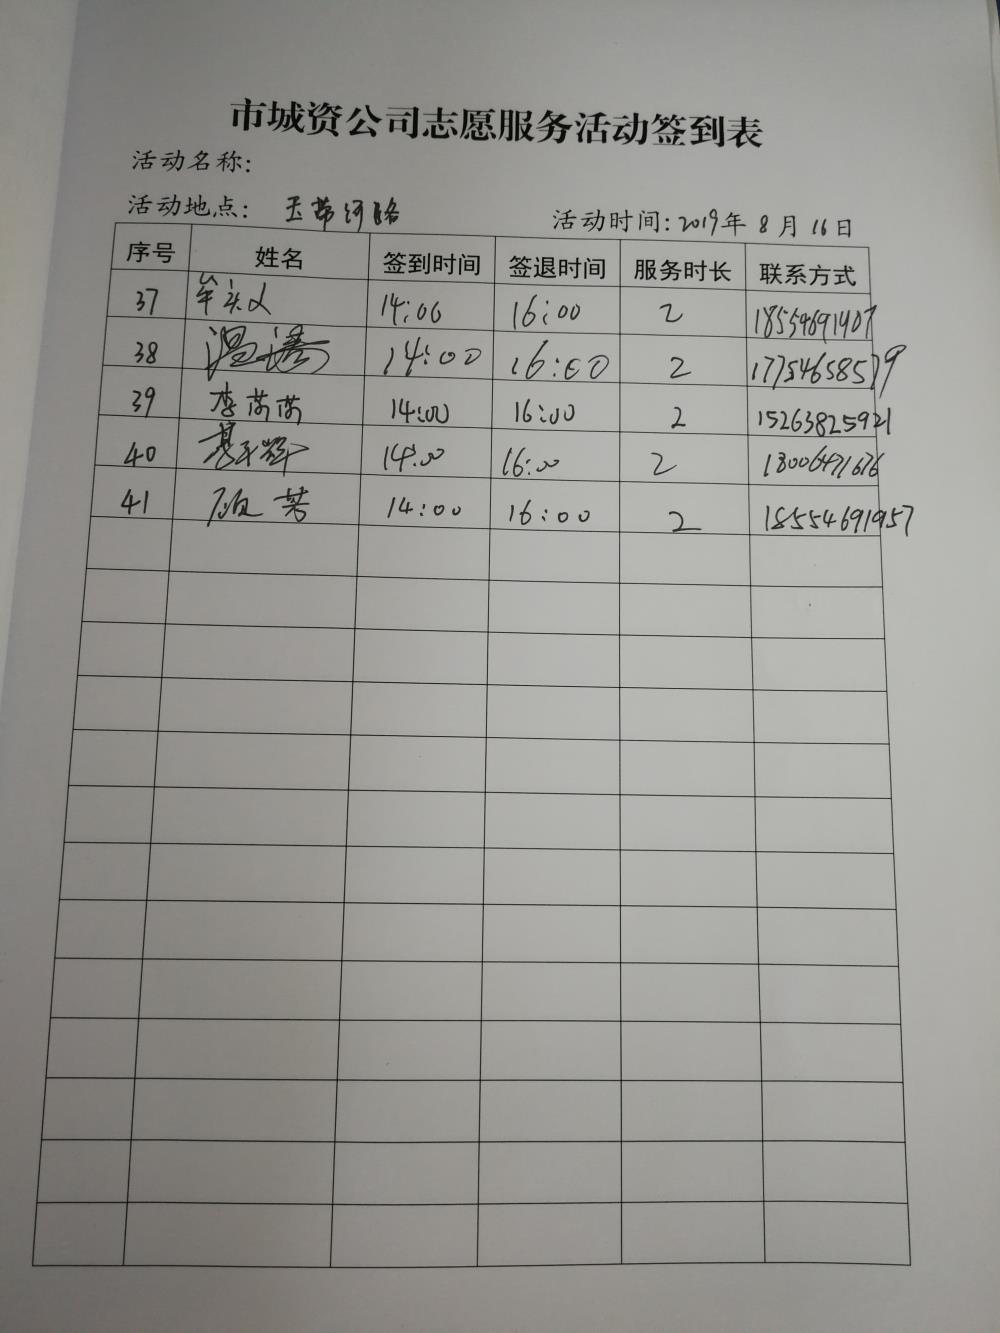 市城资公司志愿服务活动签到表
活动名称:
活动地点: 玉带河路
活动时间: 2019年 8月 16日
序号 姓名 签到时间 签退时间 服务时长 联系方式
37 14:00 16:00 2 18554691407
38 14:00 16:00 2 17754658579
39 李芮芮 14:00 16:00 2 15263825921
40 14:00 16:00 2
41 顾芳 14:00 16:00 2 18554691957